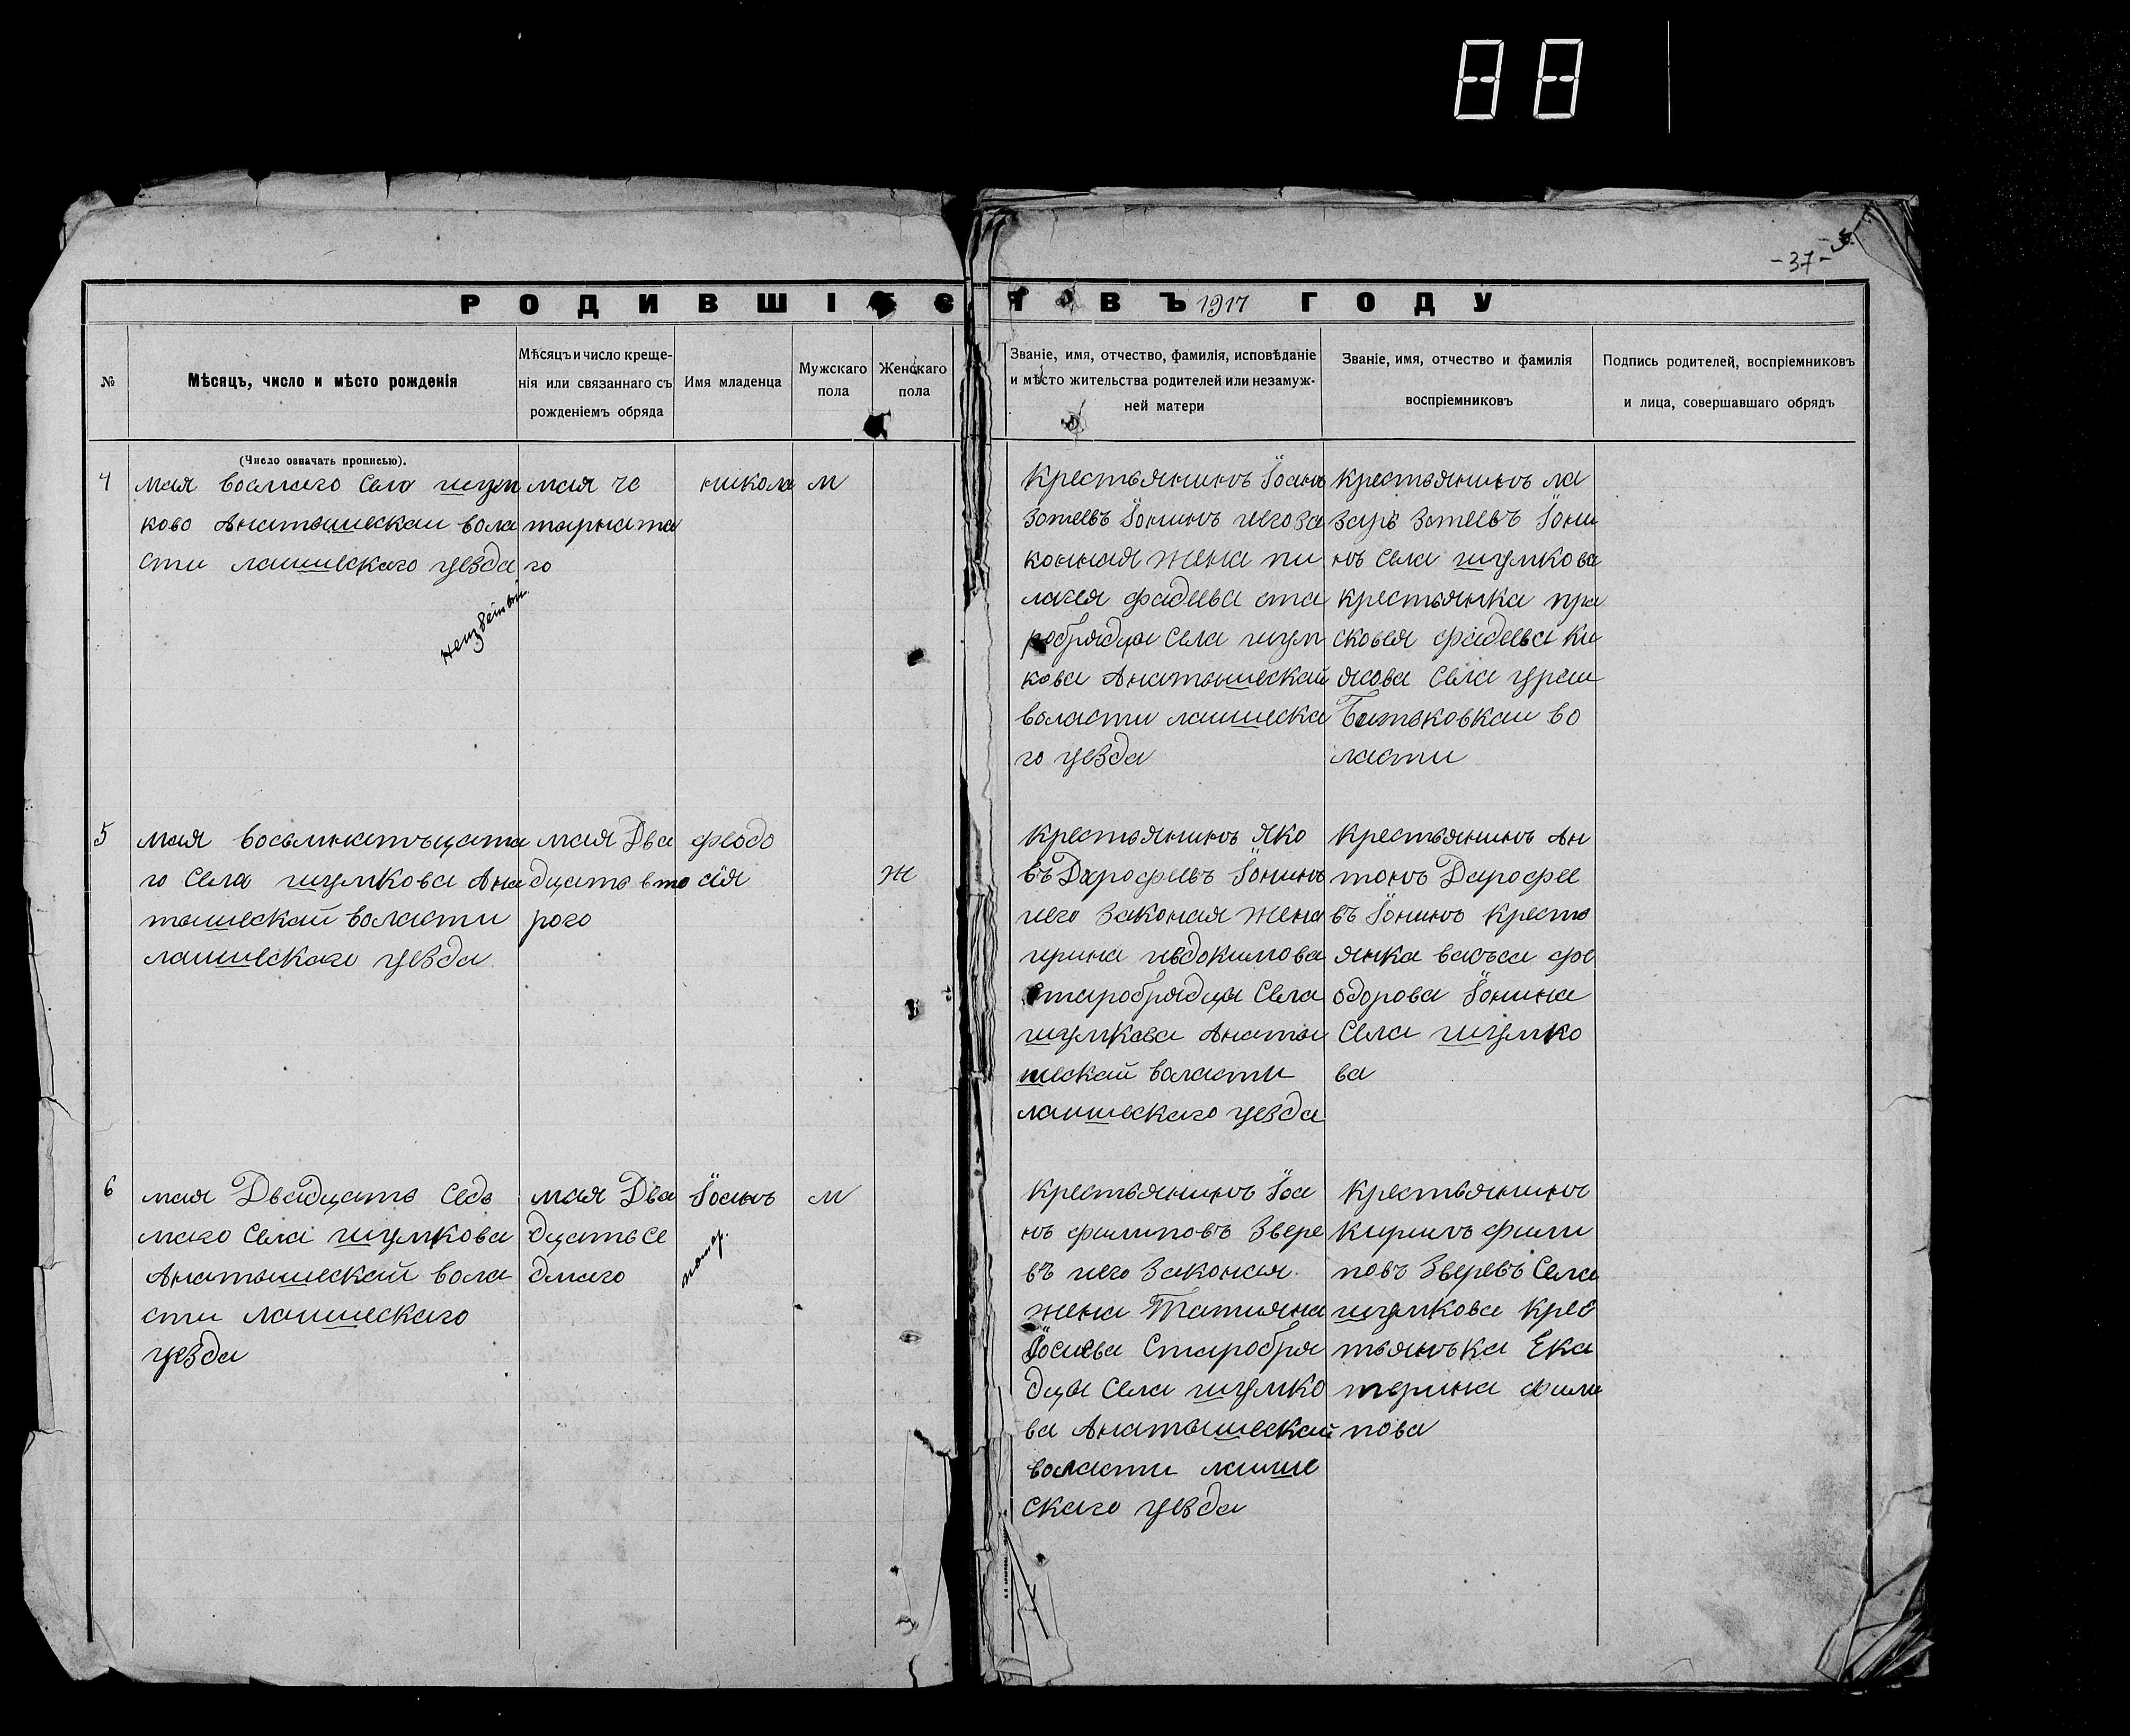 88
-37-
РОДИВШІЕСЯ ВЪ 1917 ГОДУ
№
Мѣсяцъ, число и мѣсто рожденія
Мѣсяцъ и число креще-
нія или связаннаго съ
рожденіемъ обряда
Имя младенца
Мужскаго
пола
Женскаго
пола
Званіе, имя, отчество, фамилія, исповѣданіе
и мѣсто жительства родителей или незамуж-
ней матери
Званіе, имя, отчество и фамилія
воспріемниковъ
Подпись родителей, воспріемниковъ
и лица, совершавшаго обрядъ
(Число означать прописью).
4
мая восмаго Села шум
ково Анатышескаи вола
сти лаишескаго уезда
неизвестн.
мая че
тырната
го
никола
м
Крестьянинъ Іоанъ
Зотеевъ Іонинъ иего за
конная жена пи
лагея фадеева ста
робрядцы Села шум
кова Анатышескай
воласти лаишеска
го уезда
крестьянинъ ла
зарь Зотеевъ Іони
нъ Села шумкова
крестьянка пра
сковея фадеева Кн
язова Села ураи
Батьковкаи во
ласти
5
мая восьмнатъцата
го Села шумкова Ана
тышескай воласти
лаишескаго уезда
мая Два
дцать вто
рого
феодо
сія
ж
крестьянинъ Яко
въ Дарофеевъ Іонинъ
иего Законая жена
ирина иевдокимова
Старобрядцы Села
шумкова Анаты
шескай воласти
лаишескаго уезда
Крестьянинъ Ан
тонъ Дарофее
въ Іонинъ Кресть
янка васъса фе
одорова Іонина
Села шумко
ва
6
мая Двадцать Седь
маго Села шумкова
Анатышескай вола
сти лаишескаго
уезда
мая Два
дцать се
дмаго
Іоанъ
помер.
м
Крестьянинъ Іоа
нъ филиповъ Звере
въ иего Законая
жена Татияна
Іосиева Старобря
дцы Села шумко
ва Анатышескай
воласти лаише
скаго уезда
Крестьянинъ
Кирилъ фили
повъ Зверевъ Села
шумкова Крес
тьянъка Ека
терина фили
пова